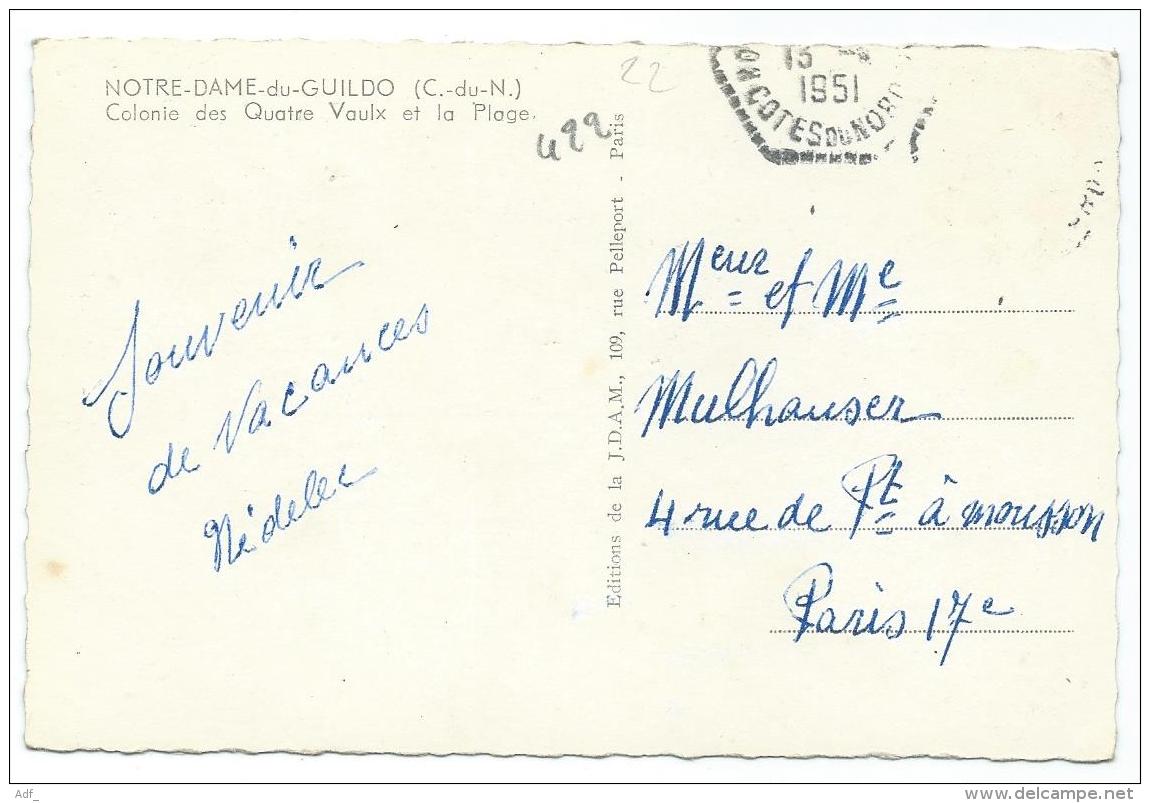 NOTRE-DAME-du-GUILDO (C.-du-N.)
Colonie des Quatre Vaulx et la Plage.
422
22
Souvenir
de Vacances
Nédelec
Editions de la J.D.A.M., 109, rue Pelleport - Paris
1951
COTES DU NORD
Meur et Me
Mulhauser
4 rue de Pt à mousson
Paris 17e
Adf_
www.delcampe.net